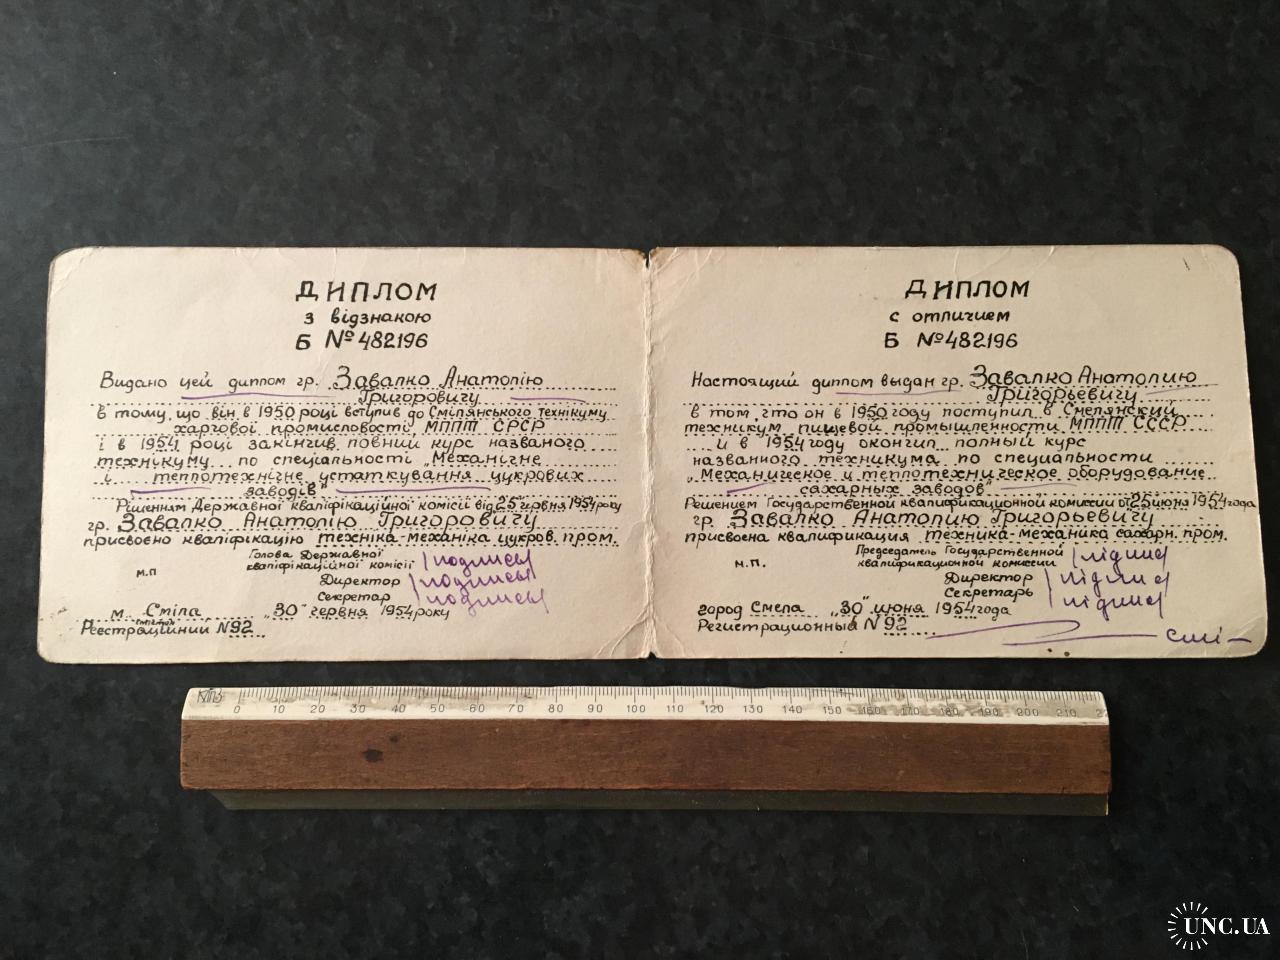 ДИПЛОМ
з відзнакою
Б № 482196
Видано цей диплом гр. Завалко Анатолію
Григоровичу
в тому, що він в 1950 році вступив до Смілянського технікуму
харчової промисловості МППТ СРСР
і в 1954 році закінчив повний курс названого
технікуму по спеціальності „Механічне
і теплотехнічне устаткування цукрових
заводів"
Рішенням Державної кваліфікаційної комісії від „25" червня 1954 року
гр. Завалко Анатолію Григоровичу
присвоєно кваліфікацію техніка-механіка цукров. пром.
Голова Державної
кваліфікаційної комісії
подписы
м.п
Директор подписы
Секретар подписы
м. Сміла „30" червня 1954 року
Реєстраційний N 92
ДИПЛОМ
с отличием
Б № 482196
Настоящий диплом выдан гр. Завалко Анатолию
Григорьевичу
в том, что он в 1950 году поступил в Смелянский
техникум пищевой промышленности МППТ СССР
и в 1954 году окончил полный курс
названного техникума по специальности
„Механическое и теплотехническое оборудование
сахарных заводов"
Решением Государственной квалификационной комиссии от 25 июня 1954 года
гр. Завалко Анатолию Григорьевичу
присвоена квалификация техника-механика сахарн. пром.
Председатель Государственной
квалификационной комиссии
підписи
м.п.
Директор підписи
Секретарь підписи
город Смела „30" июня 1954 года
Регистрационный N 92
смі
0 10 20 30 40 50 60 70 80 90 100 110 120 130 140 150 160 170 180 190 200 210
UNC.UA